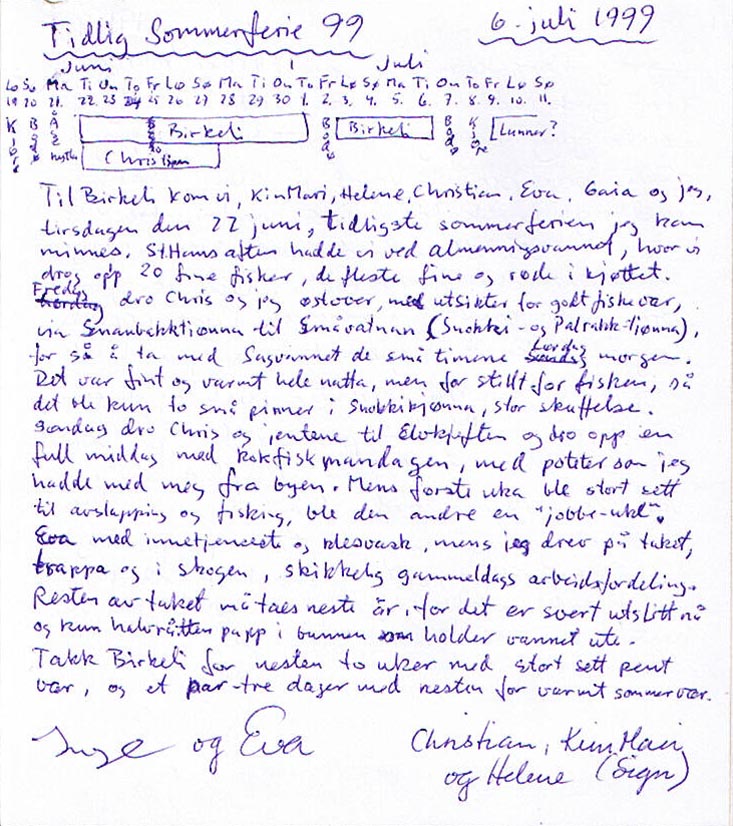 Tidlig Sommerferie 99
6. juli 1999
Juni Juli
Lø Sø Ma Ti On To Fr Lø Sø Ma Ti On To Fr Lø Sø Ma Ti On To Fr Lø Sø
19 20 21. 22. 23 24 25 26 27 28 29 30 1. 2. 3. 4. 5. 6. 7. 8. 9. 10. 11.
Birkeli Birkeli Lunner?
Christian
Til Birkeli kom vi, KimMari, Helene, Christian, Eva, Gaia og jeg,
tirsdagen den 22 juni, tidligste sommerferien jeg kan
minnes. St.Hansaften hadde vi ved almenningsvannet, hvor vi
drog opp 20 fine fisker, de fleste fine og røde i kjøttet.
Fredag dro Chris og jeg østover, med utsikter for godt fiskevær,
via til Småvatnan
for så å ta med de små timene Lørdag morgen.
Det var fint og varmt hele natta, men for stillt for fisken, så
det ble kun to små pinner i stor skuffelse.
Søndag dro Chris og jentene til og dro opp en
full middag med kokfisk mandagen, med poteter som jeg
hadde med meg fra byen. Mens første uka ble stort sett
til avslapping og fisking, ble den andre en "jobbe-uke".
Eva med innetjeneste og klesvask, mens jeg drev på taket,
trappa og i skogen, skikkelig gammeldags arbeidsfordeling.
Resten av taket må taes neste år, for det er svert utslitt nå
og kun halvråtten papp i bunnen som holder vannet ute.
Takk Birkeli for nesten to uker med stort sett pent
vær, og et par-tre dager med nesten for varmt sommervær.
Inge og Eva
Christian, Kim Mari
og Helene (Sign)